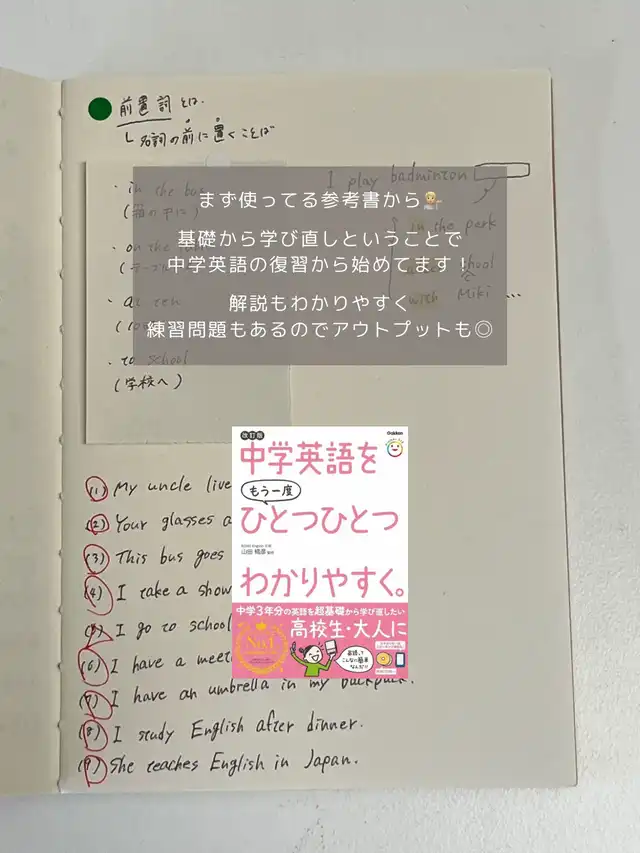 前置詞 とは、
└ 名詞の前に置くことば
・in the bus
(箱の中に)
・on the
・at ten
・to school
(学校へ)
I play badminton
in the park
school
with Miki ...
まず使ってる参考書から
基礎から学び直しということで
中学英語の復習から始めてます!
解説もわかりやすく
練習問題もあるのでアウトプットも◎
(1) My uncle live
(2) Your glasses a
(3) This bus goes
(4) I take a show
(5) I go to school
(6) I have a meet
(7) I have an umbrella in my backpack.
(8) I study English after dinner.
(9) She teaches English in Japan.
改訂版
Gakken
中学英語を
もう一度
ひとつひとつ
山田暢彦
わかりやすく。
中学3年分の英語を超基礎から学び直したい
高校生・大人に
No.1
英語って
こんなに簡単
なんだ!!